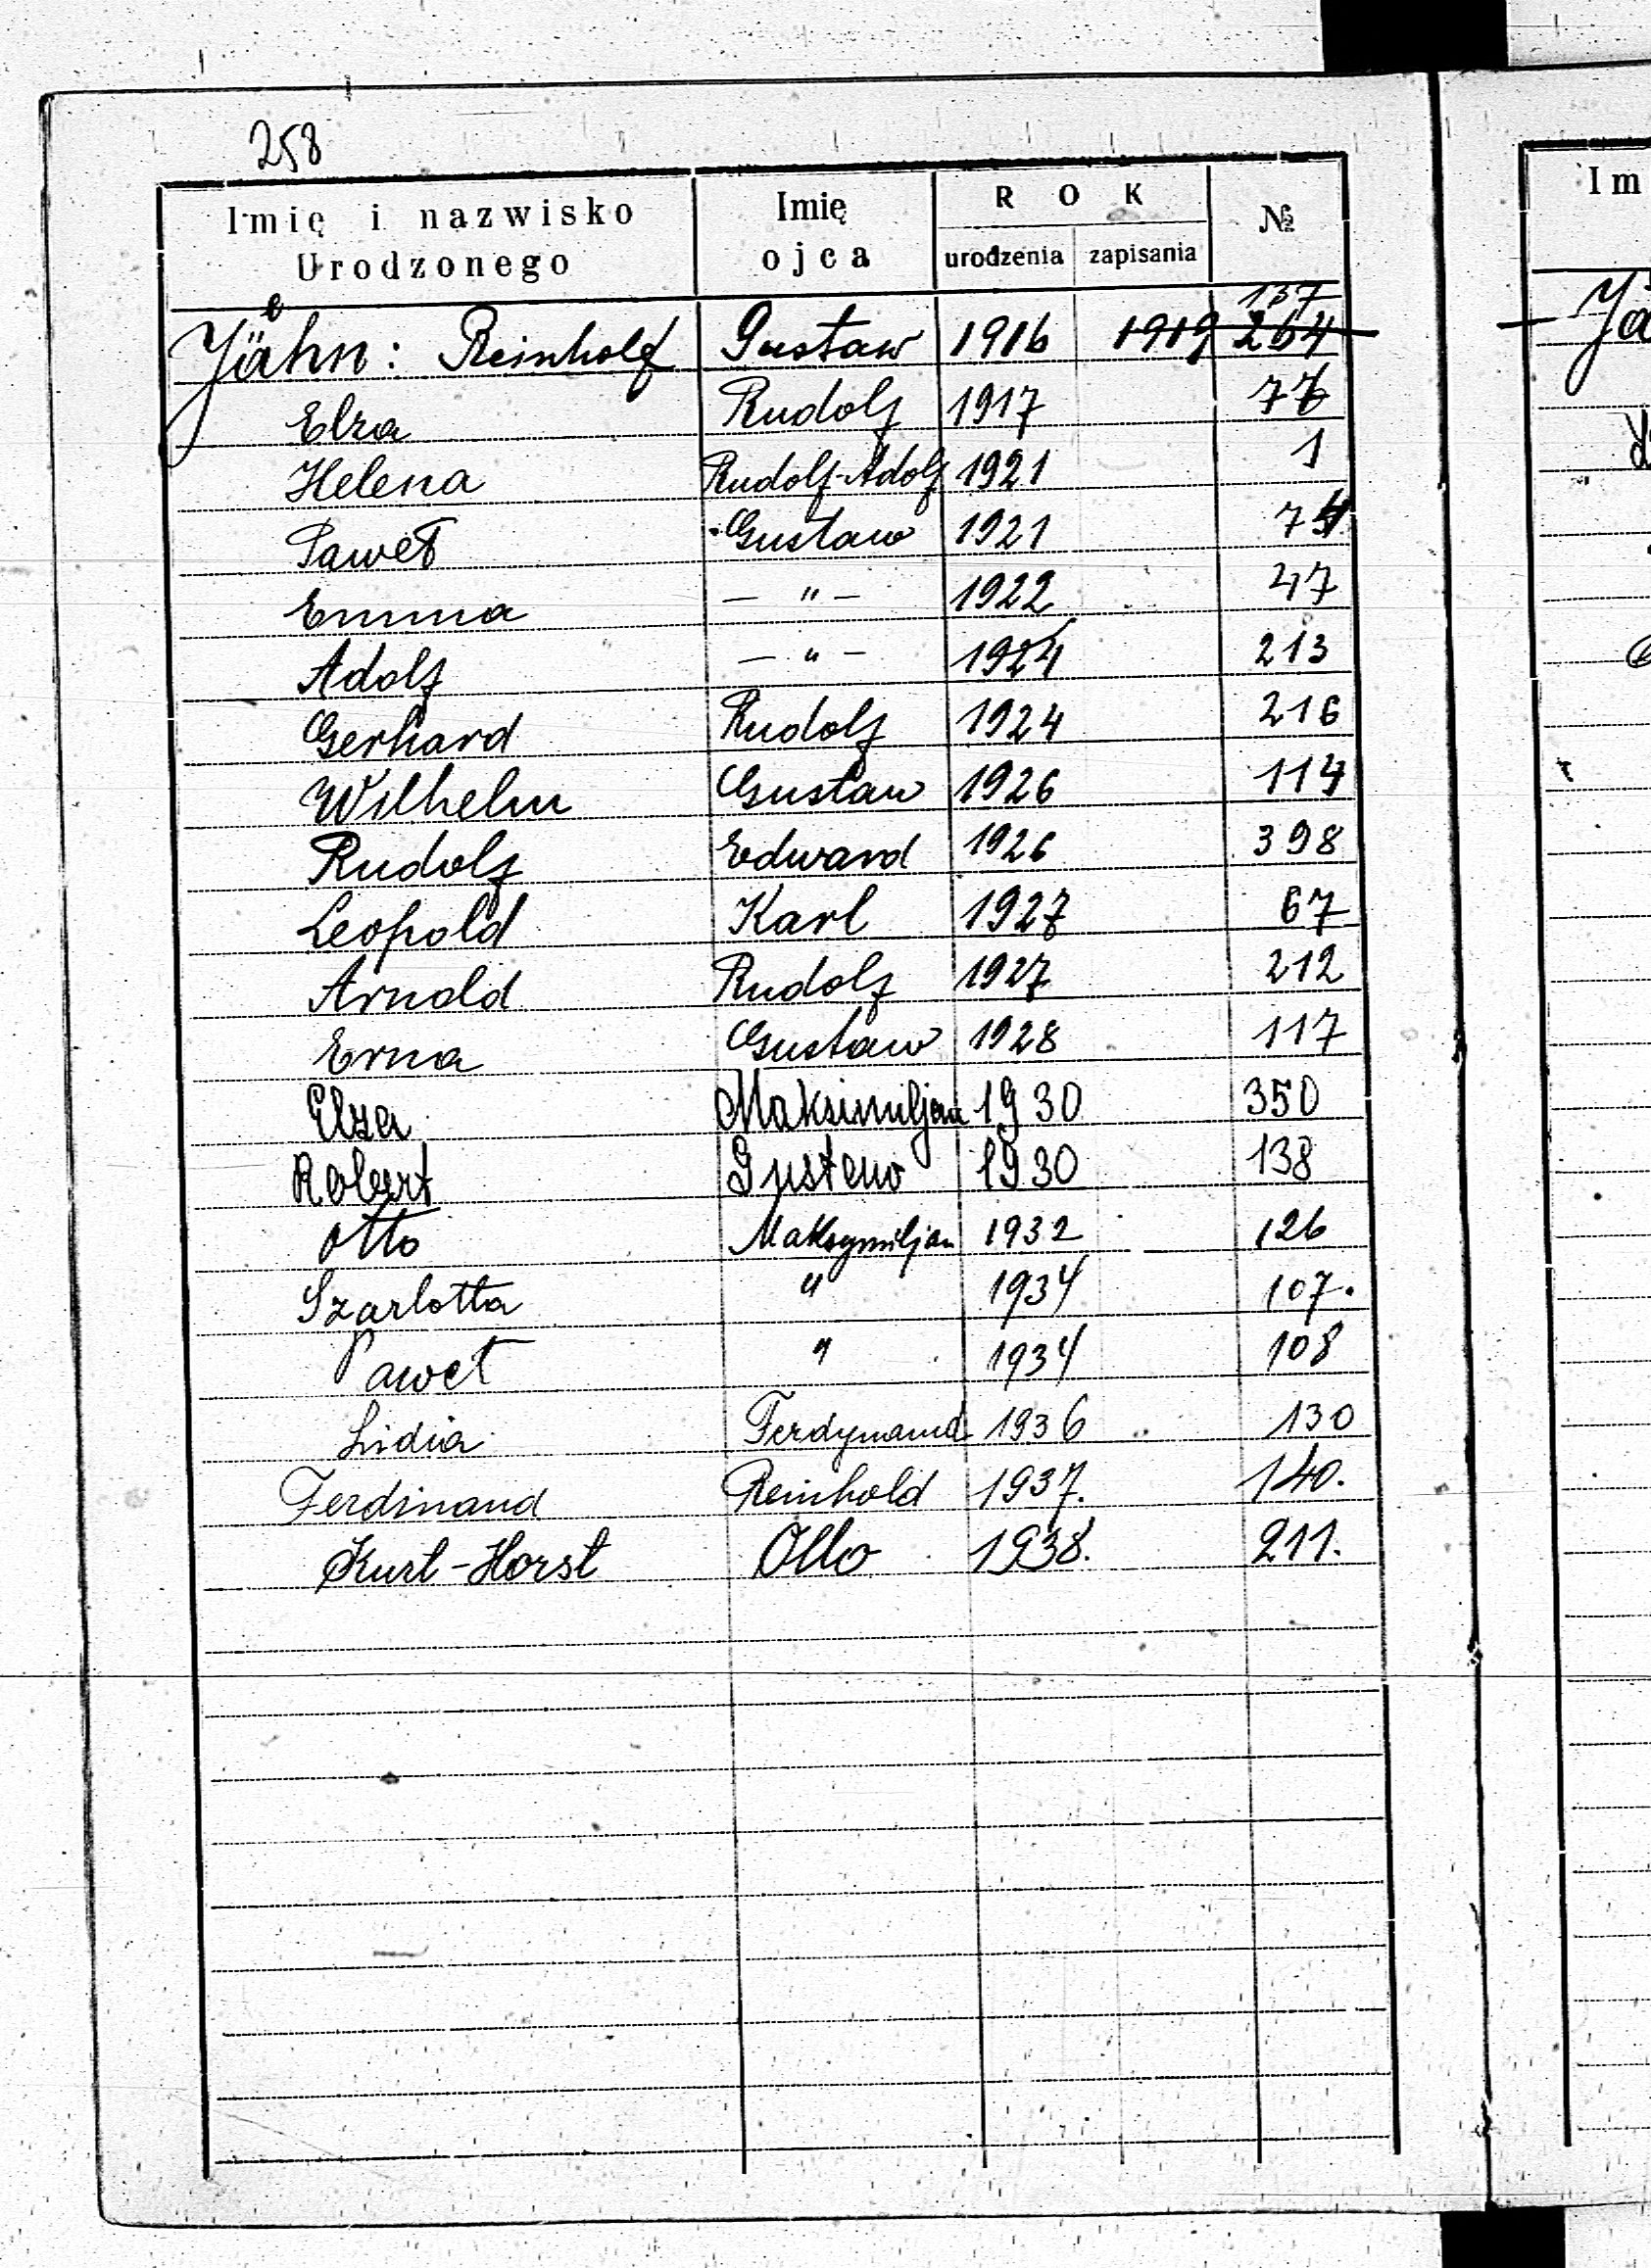 258
Imię i nazwisko Urodzonego Imię ojca ROK urodzenia zapisania №
137
Jähn: Reinhold Gustaw 1916 1919 264
Elza Rudolf 1917 77
Helena Rudolf-Adolf 1921 1
Paweł Gustaw 1921 74
Emma — " — 1922 47
Adolf — " — 1924 213
Gerhard Rudolf 1924 216
Wilhelm Gustaw 1926 114
Rudolf Edward 1926 398
Leopold Karl 1927 67
Arnold Rudolf 1927 212
Erna Gustaw 1928 117
Elza Maksimiljan 1930 350
Robert Gustaw 1930 138
Otto Maksymiljan 1932 126
Szarlotta " 1934 107.
Paweł " 1934 108
Lidia Ferdynand 1936 130
Ferdinand Reinhold 1937. 140.
Kurt-Horst Otto 1938. 211.
Im
Jä